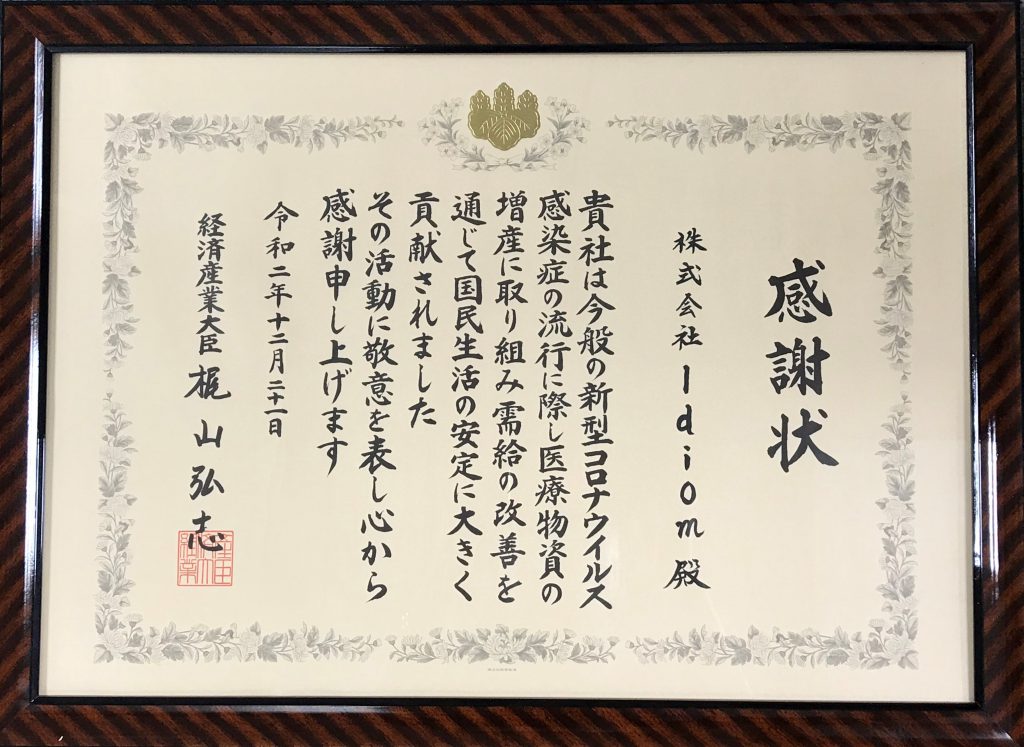 感謝状
株式会社Idiom殿
貴社は今般の新型コロナウイルス
感染症の流行に際し医療物資の
増産に取り組み需給の改善を
通じて国民生活の安定に大きく
貢献されました
その活動に敬意を表し心から
感謝申し上げます
令和二年十二月二十一日
経済産業大臣 梶山弘志